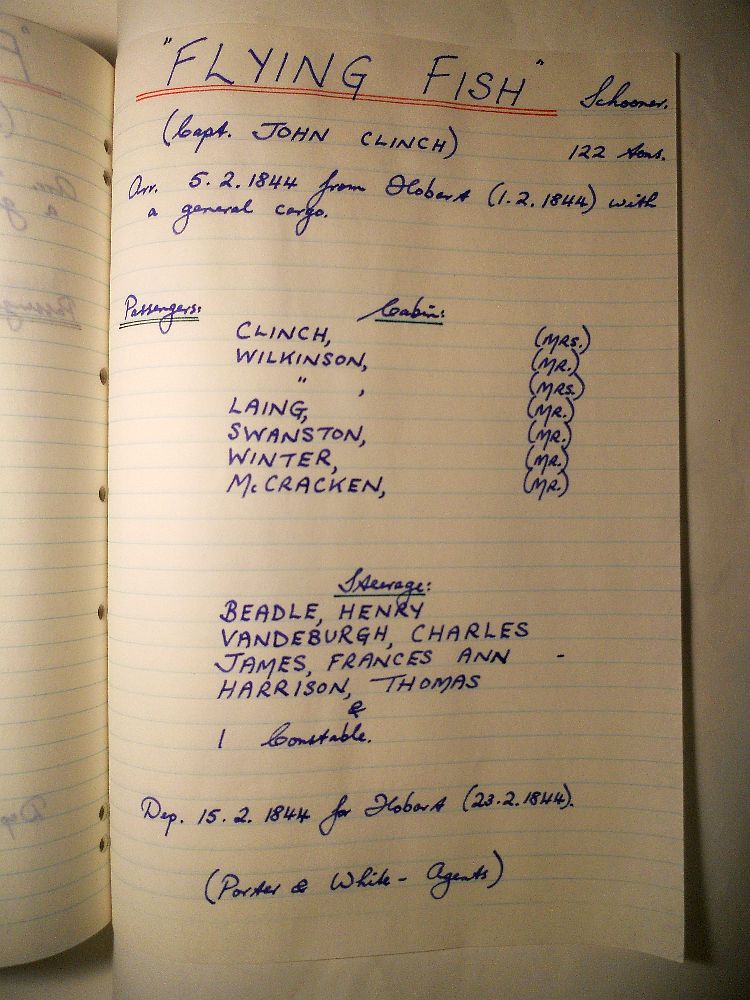 "FLYING FISH" Schooner.
(Capt. JOHN CLINCH) 122 tons.
Arr. 5.2.1844 from Hobart (1.2.1844) with
a general cargo.
Passengers: Cabin:
CLINCH, (MRS.)
WILKINSON, (MR.)
" , (MRS.)
LAING, (MR.)
SWANSTON, (MR.)
WINTER, (MR.)
McCRACKEN, (MR.)
Steerage:
BEADLE, HENRY
VANDEBURGH, CHARLES
JAMES, FRANCES ANN -
HARRISON, THOMAS
&
1 Constable.
Dep. 15.2.1844 for Hobart (23.2.1844).
(Porter & White - Agents)